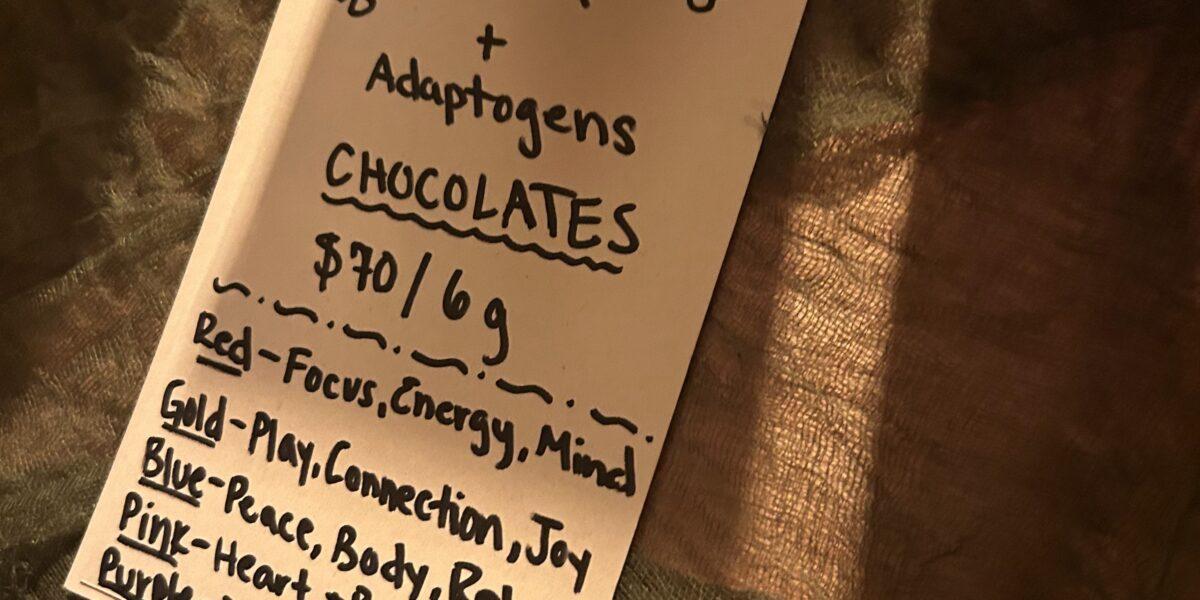 +
Adaptogens
CHOCOLATES
$70/6g
Red-Focus, Energy, Mind
Gold-Play, Connection, Joy
Blue-Peace, Body,
Pink-Heart
Purple